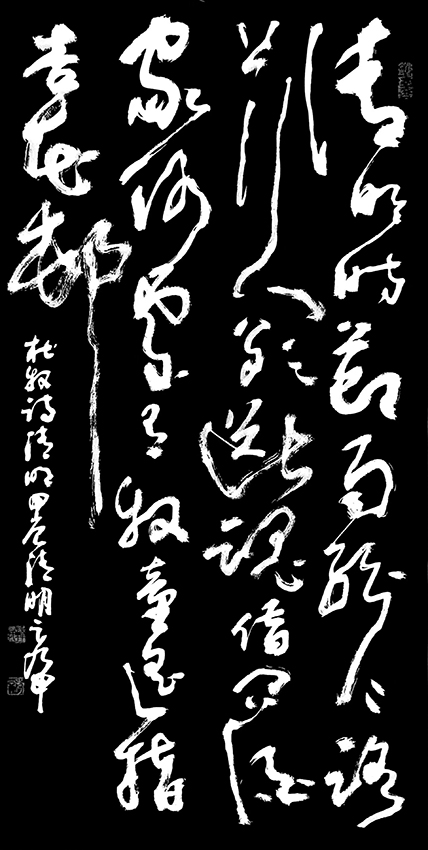 清明時節雨紛々路
上行人欲斷魂借問酒
家何處有牧童遙指
杏花邨
杜牧詩清明甲辰清明